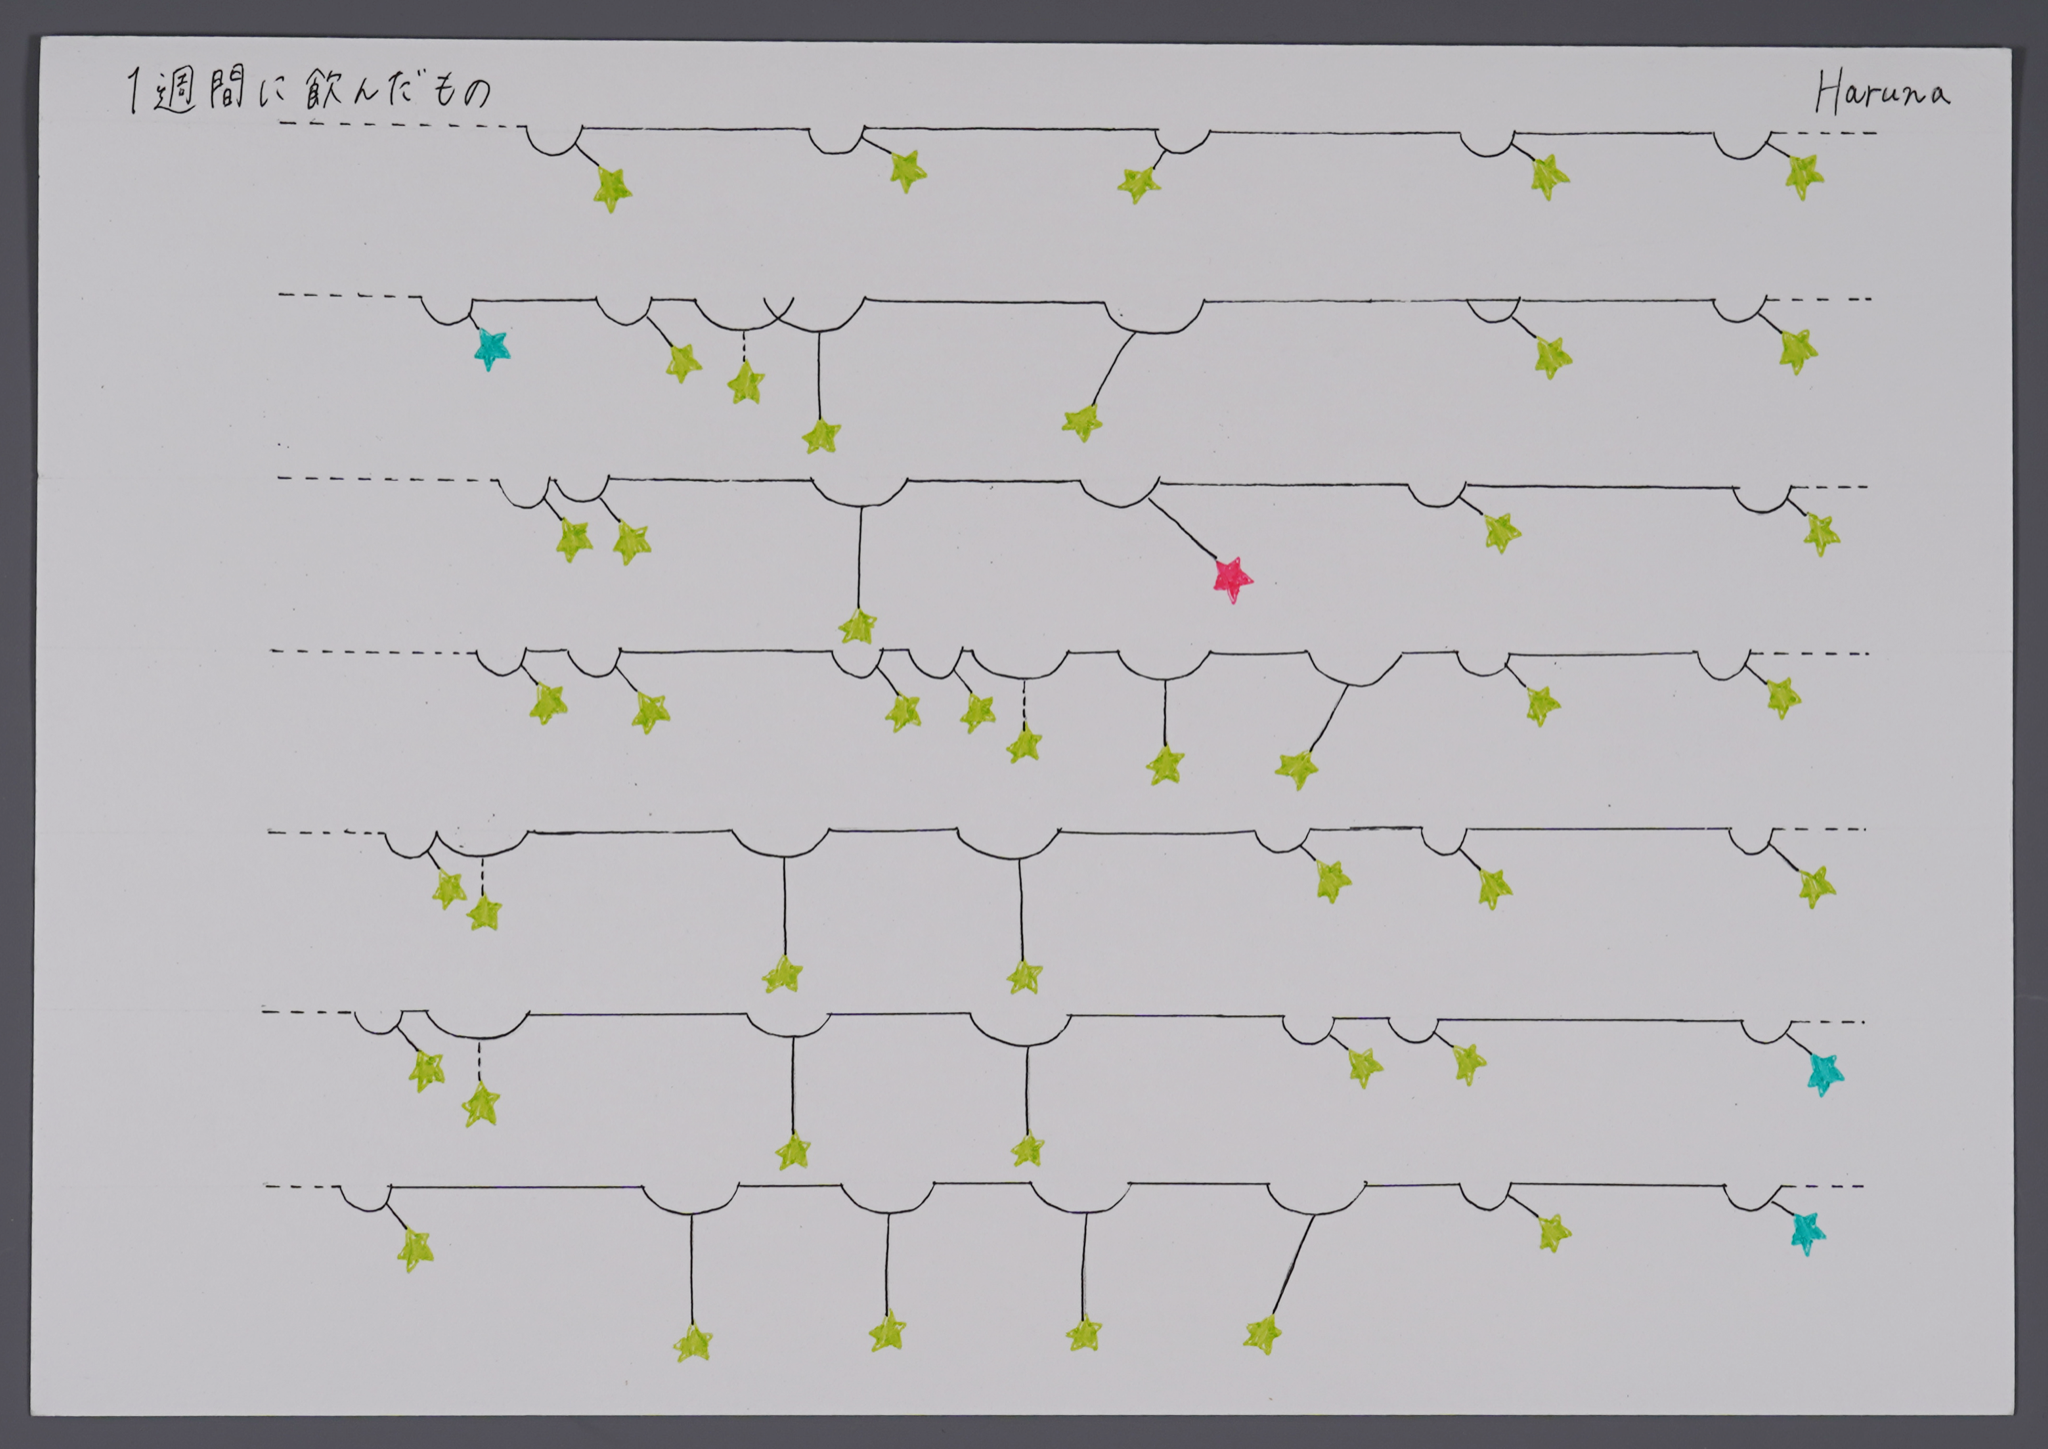 1週間に飲んだもの
Haruna